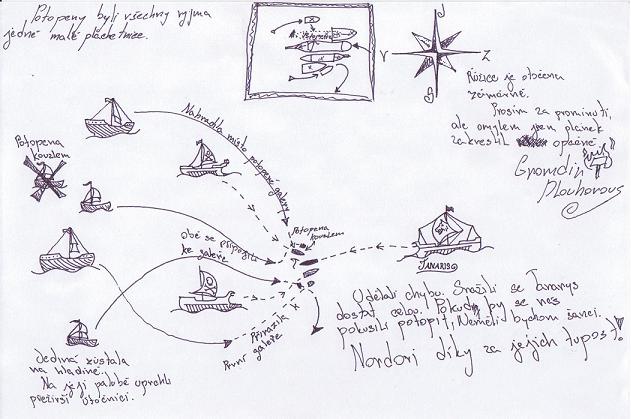 Potopeny byli všechny vyjma
jedné malé plachetnice.
J
V
Z
S
Růžice je otočena
záměrně.
Prosím za prominutí,
ale omylem jsem plánek
zakreslil opačně.
Gromdin
Dlouhovous
Potopena
kouzlem
Nahradila místo potopené galéry
Potopena
kouzlem
Obě se připojily
ke galéře
TANARIS
Přirazila k
první galéře
Jediná zůstala
na hladině.
Na její palobě uprchli
přeživší útočníci.
Udělali chybu. Snažili se Tanarys
dostat celou. Pokud by se nás
pokusili potopit, Neměli bychom šanci.
Nordori díky za jejich tupost!